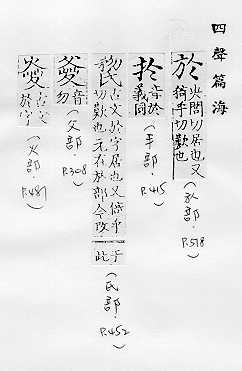 四聲篇海
於 央閭切居也又
倚乎切歎也
部. P.518)
扵 音於
義同
(手部. P.415)
古文於字居也又倚乎
切歎也元在於部今改于
此
(氏部. P.452)
音
勿
(父部. P.308)
古文
於字
(火部. P.481)